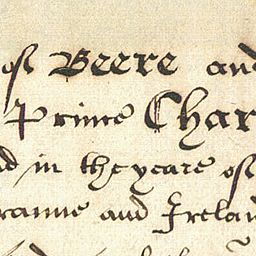 of Beere and
Prince Char
d in the yeare of
raunce and Irelan